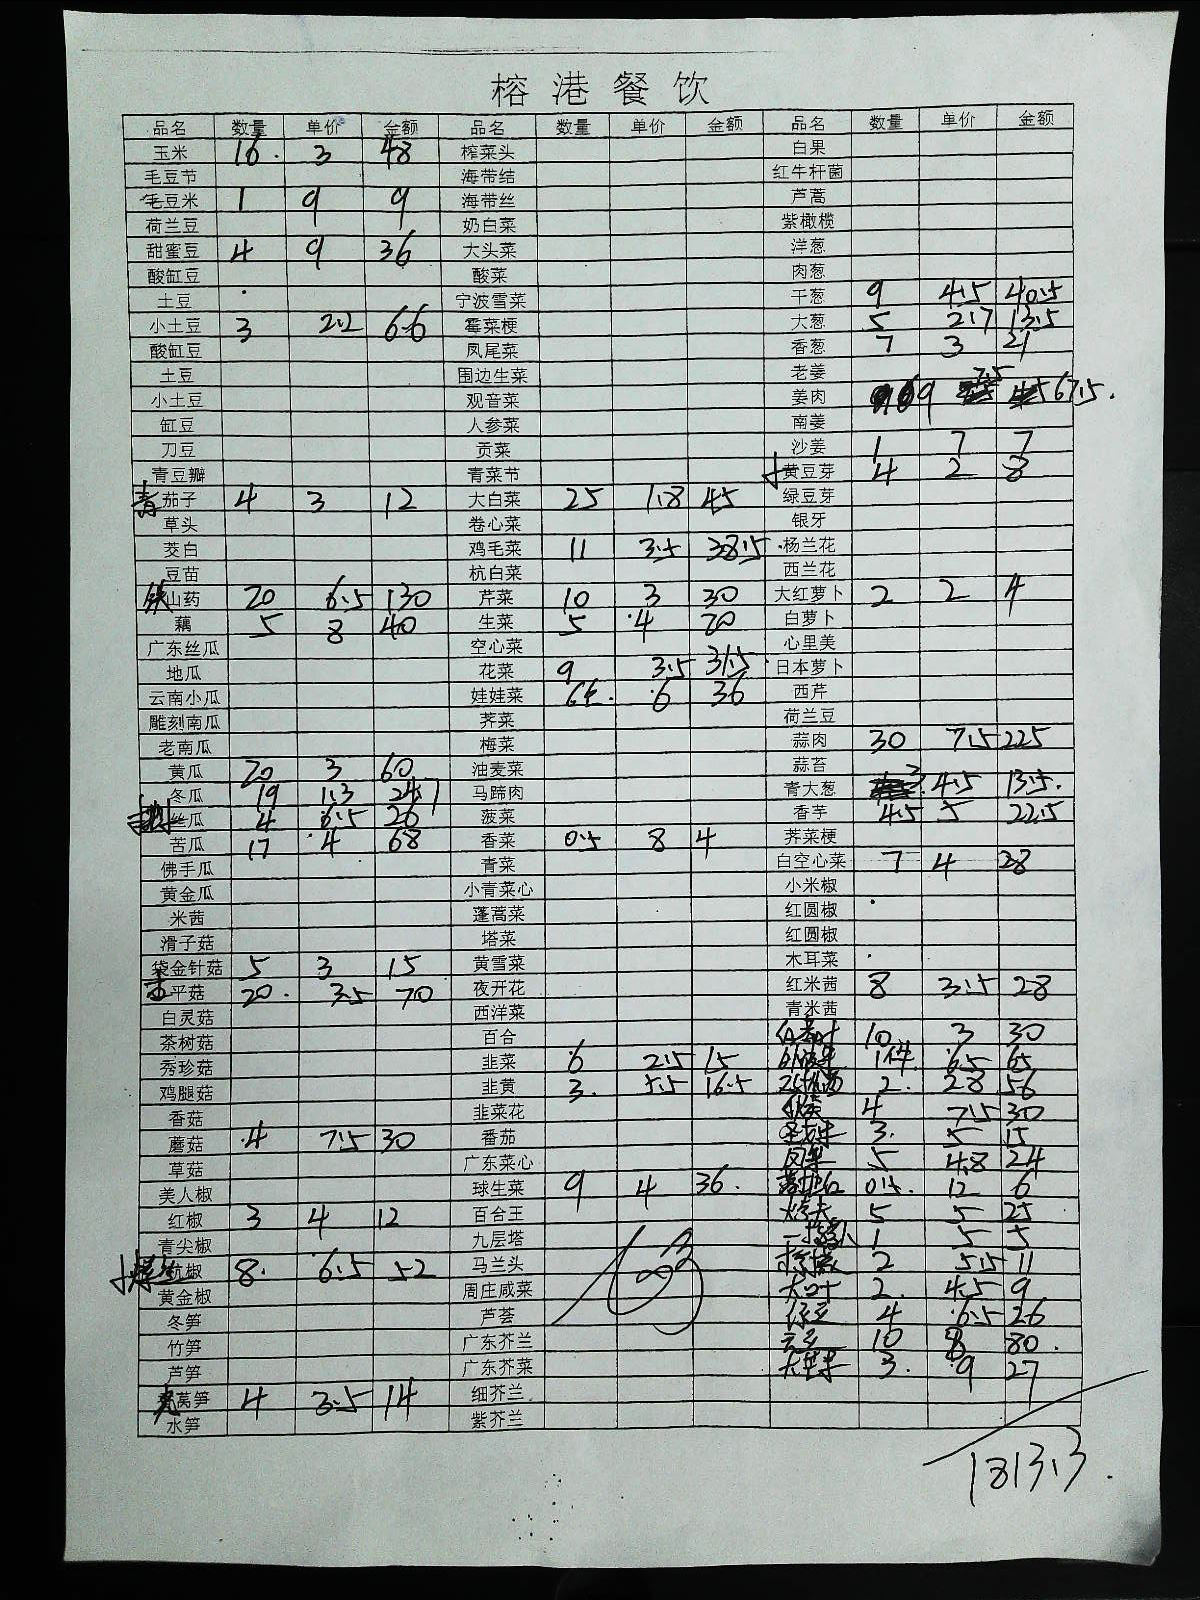 榕港餐饮
品名 数量 单价 金额 品名 数量 单价 金额 品名 数量 单价 金额
玉米 16. 3 48 榨菜头 白果
毛豆节 海带结 红牛杆菌
毛豆米 1 9 9 海带丝 芦蒿
荷兰豆 奶白菜 紫橄榄
甜蜜豆 4 9 36 大头菜 洋葱
酸缸豆 酸菜 肉葱
土豆 宁波雪菜 干葱 9 4.5 40.5
小土豆 3 2.2 6.6 霉菜梗 大葱 5 2.7 13.5
酸缸豆 凤尾菜 香葱 7 3 21
土豆 围边生菜 老姜
小土豆 观音菜 姜肉 9 7.5 67.5.
缸豆 人参菜 南姜
刀豆 贡菜 沙姜 1 7 7
青豆瓣 青菜节 黄豆芽 4 2 8
青茄子 4 3 12 大白菜 25 1.8 45 绿豆芽
草头 卷心菜 银牙
茭白 鸡毛菜 11 3.5 38.5 杨兰花
豆苗 杭白菜 西兰花
铁山药 20 6.5 130 芹菜 10 3 30 大红萝卜 2 2 4
藕 5 8 40 生菜 5 4 20 白萝卜
广东丝瓜 空心菜 心里美
地瓜 花菜 9 3.5 31.5 日本萝卜
云南小瓜 娃娃菜 6 36 西芹
雕刻南瓜 荠菜 荷兰豆
老南瓜 梅菜 蒜肉 30 7.5 225
黄瓜 20 3 60 油麦菜 蒜苔
冬瓜 19 1.3 24.7 马蹄肉 青大葱 3 4.5 13.5.
丝瓜 4 6.5 26 菠菜 香芋 4.5 5 22.5
苦瓜 17 4 68 香菜 0.5 8 4 荠菜梗
佛手瓜 青菜 白空心菜 7 4 28
黄金瓜 小青菜心 小米椒
米茜 蓬蒿菜 红圆椒
滑子菇 塔菜 红圆椒
袋金针菇 5 3 15 黄雪菜 木耳菜
平菇 20. 3.5 70 夜开花 红米茜 8 3.5 28
白灵菇 西洋菜 青米茜
茶树菇 百合 10 3 30
秀珍菇 韭菜 6 2.5 15 1件 65 65
鸡腿菇 韭黄 3. 5.5 16.5 2. 28 56
香菇 韭菜花 4 7.5 30
蘑菇 4 7.5 30 番茄 3. 5 15
草菇 广东菜心 5 4.8 24
美人椒 球生菜 9 4 36. 0.5. 12 6
红椒 3 4 12 百合王 烤夫 5 5 25
青尖椒 九层塔 1 5 5
杭椒 8. 6.5 52 马兰头 2 5.5 11
黄金椒 周庄咸菜 大叶 2. 4.5 9
冬笋 芦荟 4 6.5 26
竹笋 广东芥兰 10 8 80.
芦笋 广东芥菜 3. 9 27
莴笋 4 3.5 14 细芥兰
水笋 紫芥兰
1813.3.